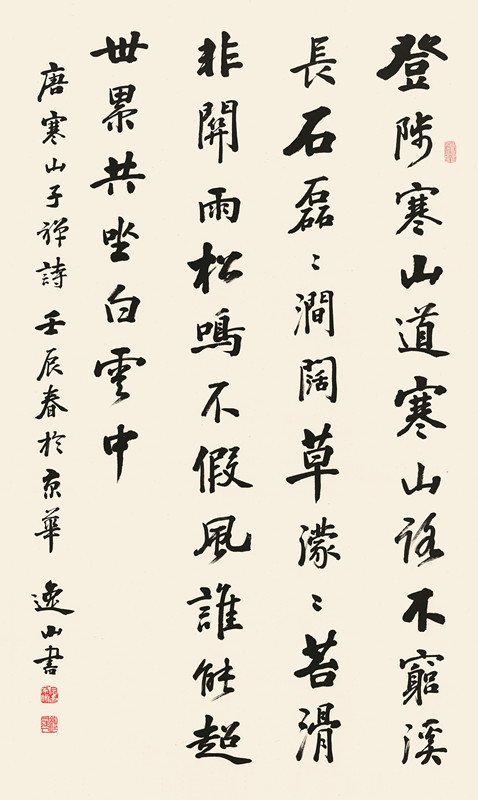 登陟寒山道寒山路不窮溪
長石磊〻澗闊草濛〻苔滑
非關雨松鳴不假風誰能超
世累共坐白雲中
唐寒山子禅詩 壬辰春於京華 逸山書